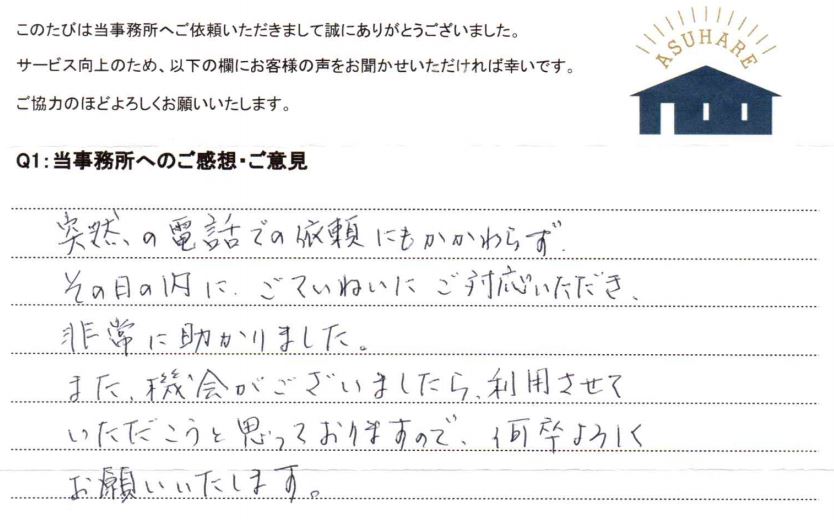 このたびは当事務所へご依頼いただきまして誠にありがとうございました。
サービス向上のため、以下の欄にお客様の声をお聞かせいただければ幸いです。
ご協力のほどよろしくお願いいたします。
ASUHARE
Q1：当事務所へのご感想・ご意見
突然の電話での依頼にもかかわらず、
その日の内に、ごていねいにご対応いただき、
非常に助かりました。
また、機会がございましたら、利用させて
いただこうと思っておりますので、何卒よろしく
お願いいたします。